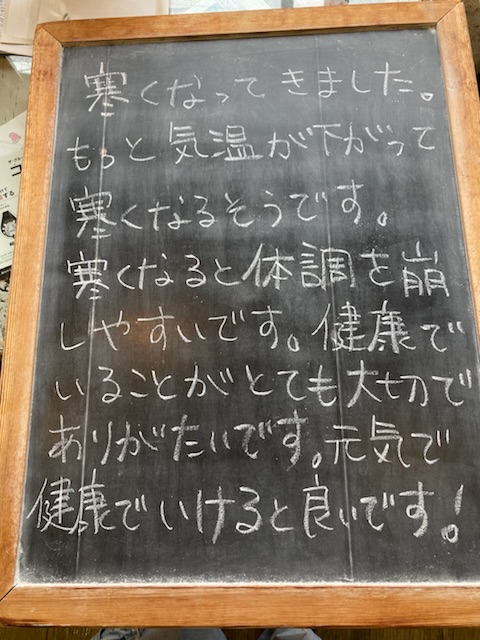 寒くなってきました。
もっと気温が下がって
寒くなるそうです。
寒くなると体調を崩
しやすいです。健康で
いることがとても大切で
ありがたいです。元気で
健康でいけると良いです!